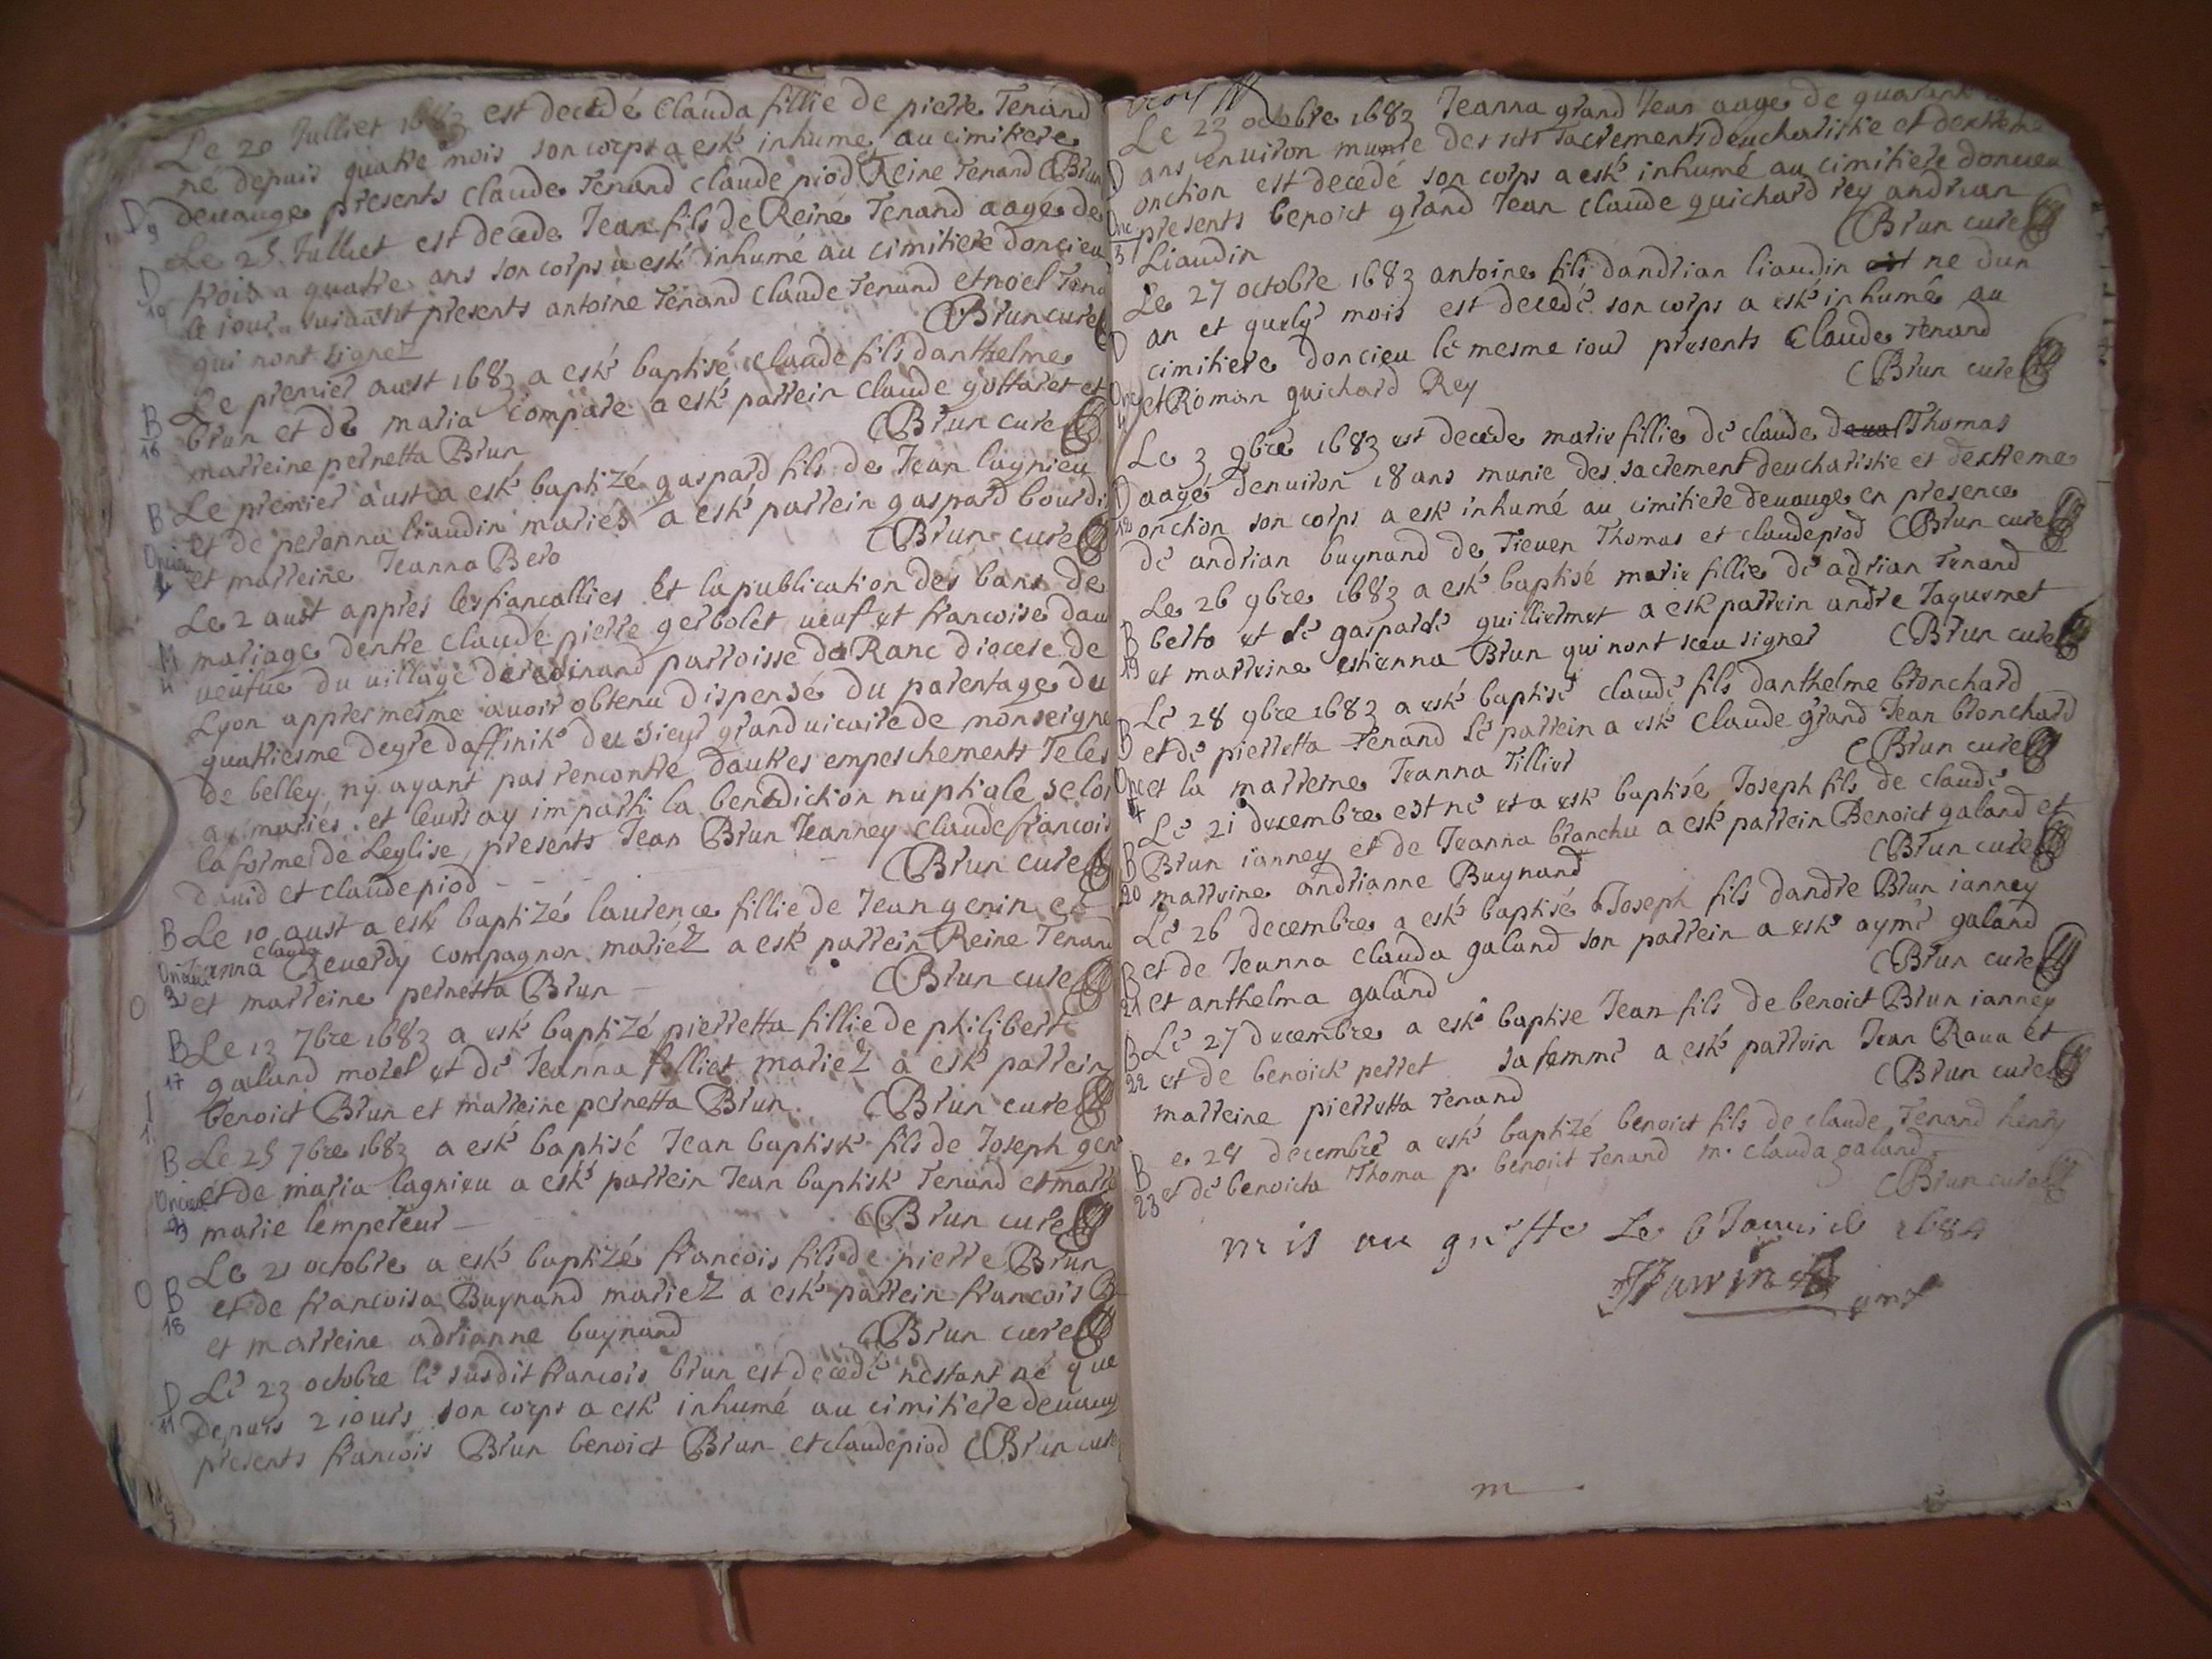 Le 20 Julliet 1683 est decedé Clauda fillie de pierre Tenand
né depuis quatre mois son corps a esté inhumé au cimitiere
D 9 deuauge presents claude Tenand claude piod Reine Tenand Brun
Le 25 Julliet est decede Jean fils de Reine Tenand aagé de
D 10 trois a quatre ans son corps a esté inhumé au cimitiere doncieu
le iour suiuant presents antoine Tenand claude Tenand et noel Tena
qui nont signez Brun cure
Le premier aust 1683 a esté baptisé claude fils danthelme
B 16 brun et de maria compare a esté parrein claude gottaret et
marreine pernetta Brun Brun cure
B Le premier aust a esté baptizé gaspard fils de Jean lagnieu
Oncieu et de peronna liaudin mariés a esté parrein gaspard bourdi
et marreine Jeanna Bero Brun cure
Le 2 aust apprés les fiancallies et la publication des bans de
M mariage dentre claude pierre gerbolet ueuf et francoise dau
4 ueufue du uillage parroisse de Ranc diocese de
Lyon appres mesme auoir obtenu dispense du parentage du
quatriesme degre daffinité du sieur grand uicaire de monseigne
de belley ny ayant pas rencontré dautres empeschements Ie les
ay mariés et leurs ay imparti la benediction nuptiale selon
la forme de Leglise, presents Jean Brun Jeanney claude francois
dauid et claude piod Brun cure
B Le 10 aust a esté baptizé laurence fillie de Jean genin et
clauda
Oncieu Jeanna Reuerdy compagnon mariéz a esté parrein Reine Tenand
3 et marreine pernetta Brun Brun cure
B Le 13 7bre 1683 a esté baptizé pierretta fillie de philibert
17 galand morel et de Jeanna folliet mariez a esté parrein
benoict Brun et marreine pernetta Brun. Brun cure
B Le 25 7bre 1683 a esté baptisé Jean baptiste fils de Joseph gen
Oncieu et de maria lagnieu a esté parrein Jean baptiste Tenand et marre
marie lempereur Brun cure
Le 21 octobre a esté baptizé francois fils de pierre Brun
B et de francoisa Buynand mariez a esté parrein francois B
18 et marreine adrianne buynand Brun cure
D Le 23 octobre le susdit francois brun est decedé nestant né que
11 depuis 2 iours son corps a esté inhumé au cimitiere deuaug
presents francois Brun benoict Brun et claude piod Brun cure
Le 23 octobre 1683 Jeanna grand Jean aage de quarant
D ans enuiron munie des sts sacrements deucharistie et dextreme
onction est decedé son corps a esté inhumé au cimitiere doncieu
Onc presents benoict grand Jean claude guichard rey andrian
3 Liaudin Brun cure
Le 27 octobre 1683 antoine fils dandrian liaudin est ne dun
D an et quelq mois est decedé son corps a esté inhumé au
cimitiere doncieu le mesme iour presents claude Tenand
Onc et Roman guichard Rey Brun cure
Le 3 9bre 1683 est decede marie fillie de claude Thomas
D aagé denuiron 18 ans munie des sacrement deucharistie et dextreme
12 onction son corps a esté inhumé au cimitiere deuauge en presence
de andrian buynand de Tieuen Thomas et claude piod Brun cure
Le 26 9bre 1683 a esté baptisé marie fillie de adrian Tenand
B berto et de gasparde guilliermet a esté parrein andre Taguemet
19 et marreine estienna Brun qui nont sceu signer Brun cure
Le 28 9bre 1683 a esté baptisé claude fils danthelme bronchard
B et de pierretta Tenand le parrein a esté Claude grand Jean bronchard
Onc et la marreine Jeanna Tilliet Brun cure
4 Le 21 decembre est né et a esté baptisé Joseph fils de claude
B Brun ianney et de Jeanna branchu a esté parrein Benoict galand et
20 marreine andrianne Buynand Brun cure
Le 26 decembre a esté baptisé Joseph fils dandre Brun ianney
B et de Jeanna clauda galand son parrein a esté aymé galand
21 et anthelma galand Brun cure
B Le 27 decembre a esté baptise Jean fils de benoict Brun ianney
22 et de benoicte perret sa femme a esté parrein Jean Raua et
marreine pierretta Tenand Brun cure
B e 28 decembre a esté baptizé benoict fils de claude Tenand henry
23 et de benoicta Thoma p. benoict Tenand m. clauda galand
Brun cure
mis au greffe Le 6 Januié 1684
m